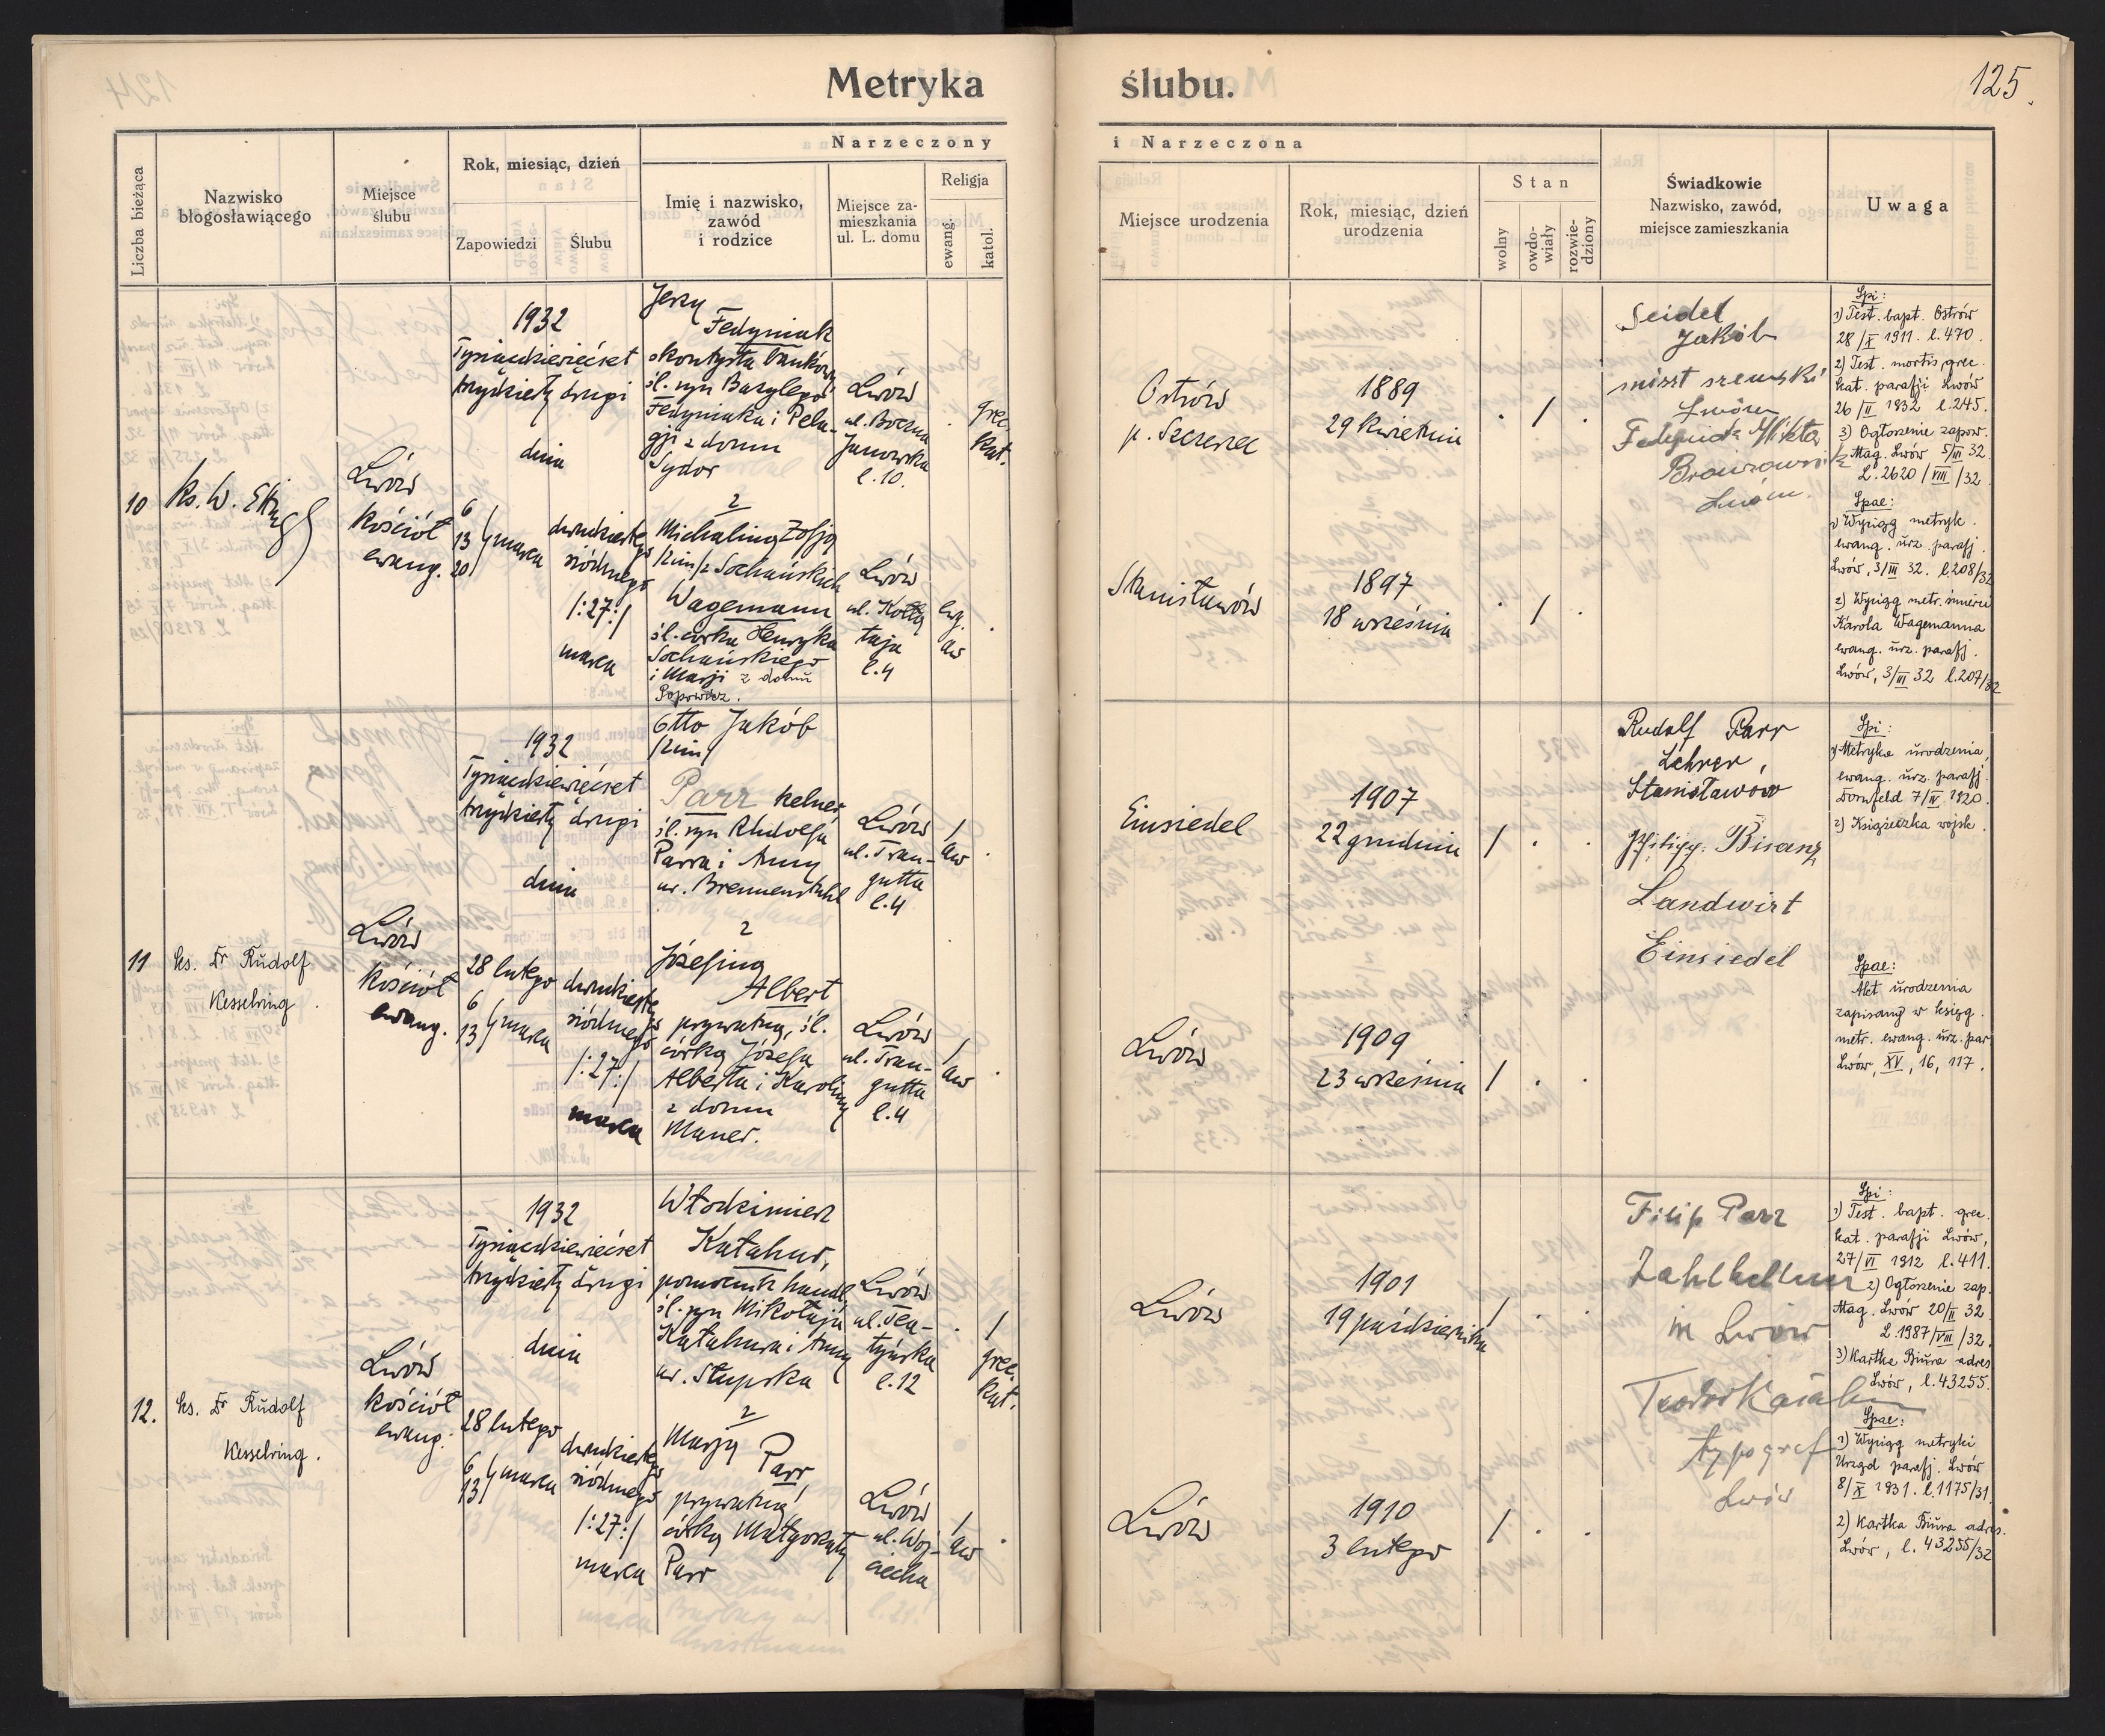 Metryka ślubu.
125.
Liczba bieżąca
Nazwisko
błogosławiącego
Miejsce
ślubu
Rok, miesiąc, dzień
Zapowiedzi
Ślubu
Narzeczony
Imię i nazwisko,
zawód
i rodzice
Miejsce za-
mieszkania
ul. L. domu
Religja
ewang.
katol.
i Narzeczona
Miejsce urodzenia
Rok, miesiąc, dzień
urodzenia
Stan
wolny
owdo-
wiały
rozwie-
dziony
Świadkowie
Nazwisko, zawód,
miejsce zamieszkania
Uwaga
10
Ks. W.
Lwów
Kościół
ewang.
1932
Tysiącdziewięćset
trzydziesty drugi
dnia
6
13 } marca
20
dwudziestego
siódmego
/:27:/
marca
Jerzy
Fedyniak
skontysta bankowy
śl. syn Bazylego
Fedyniaka i Pela-
gji z domu
Sydor
z
Michaliną Zofją
/2im/ z Sochańskich
Wagemann
śl. córka Henryka
Sochańskiego
i Marji z domu
Lwów
ul. Boczna
Janowska
l. 10.
Lwów
ul. Kołłą
taja
l. 4
grec.
Kat.
ewg.
aw
Ostrów
p. Szczerzec
1889
29 Kwietnia
. / .
Stanisławów
1897
18 września
. / .
Seidel
Jakób
majst szewski
Lwów
Lwów.
Spi:
1) Test. bapt. Ostrów
28/X 1911. l. 470.
2) Test. mortis, grec.
kat. parafji Lwów
26/II 1932 l. 245.
3) Ogłoszenie zapow.
Mag. Lwów 5/III 32.
L. 2620/VIII/32
Spae:
1) Wyciąg metryk.
ewang. urz. parafj.
Lwów, 3/III 32. l. 208/32
2) Wyciąg metr. śmierci
Karola Wagemanna
ewang. urz. parafj.
Lwów, 3/III 32 l. 207/32
11
ks. Dr Rudolf
Kesselring.
Lwów
Kościół
ewang.
1932
Tysiącdziewięćset
trzydziesty drugi
dnia
28 lutego
6
13 } marca
dwudziestego
siódmego
/:27:/
marca
Otto Jakób
/2im/
Parr kelner
śl. syn Rudolfa
Parra i Anny
ur. Brennenstuhl
z
Józefiną
Albert
prywatną, śl.
córką Józefa
Alberta i Karoliny
z domu
Maner.
Lwów
ul. Trau-
gutta
l. 4
Lwów
ul. Trau-
gutta
l. 4
/
aw
/
aw
Einsiedel
1907
22 grudnia
/ . .
Lwów
1909
23 września
/ . .
Rudolf Parr
Lehrer,
Stanisławów
Philipp Bisanz
Landwirt
Einsiedel
Spi:
1) Metryka urodzenia,
ewang. urz. parafj.
Dornfeld 7/IV 1920.
2) Książeczka wojsk.
Spae:
Akt urodzenia
zapisany w księg.
metr. ewang. urz. par
Lwów, XV, 16, 117.
12.
ks. Dr Rudolf
Kesselring.
Lwów
Kościół
ewang.
1932
Tysiącdziewięćset
trzydziesty drugi
dnia
28 lutego
6
13 } marca
dwudziestego
siódmego
/:27:/
marca
Włodzimierz
Katahur,
pomocnik handl.
śl. syn Mikołaja
Katahura i Anny
ur. Słupska
z
Marją
Parr
prywatną
córką Małgorzaty
Parr
Lwów
ul. Tea-
tyńska
l. 12
Lwów
ul. Woj-
ciecha
/
grec.
Kat.
/
aw
Lwów
1901
19 października
/ . .
Lwów
1910
3 lutego
/ . .
Filip Parr
Zahlkellner
in Lwów
Teodor
typograf
Lwów
Spi:
1) Test. bapt. grec.
kat. parafji Lwów,
27/VI 1912 l. 411.
2) Ogłoszenie zap.
Mag. Lwów 20/II 32
L. 1987/VIII/32.
3) Kartka Biura adres
Lwów, l. 43255.
Spae:
1) Wyciąg metryki
Urząd parafj. Lwów
8/X 1931. l. 1175/31.
2) Kartka Biura adres.
Lwów, l. 43255/32